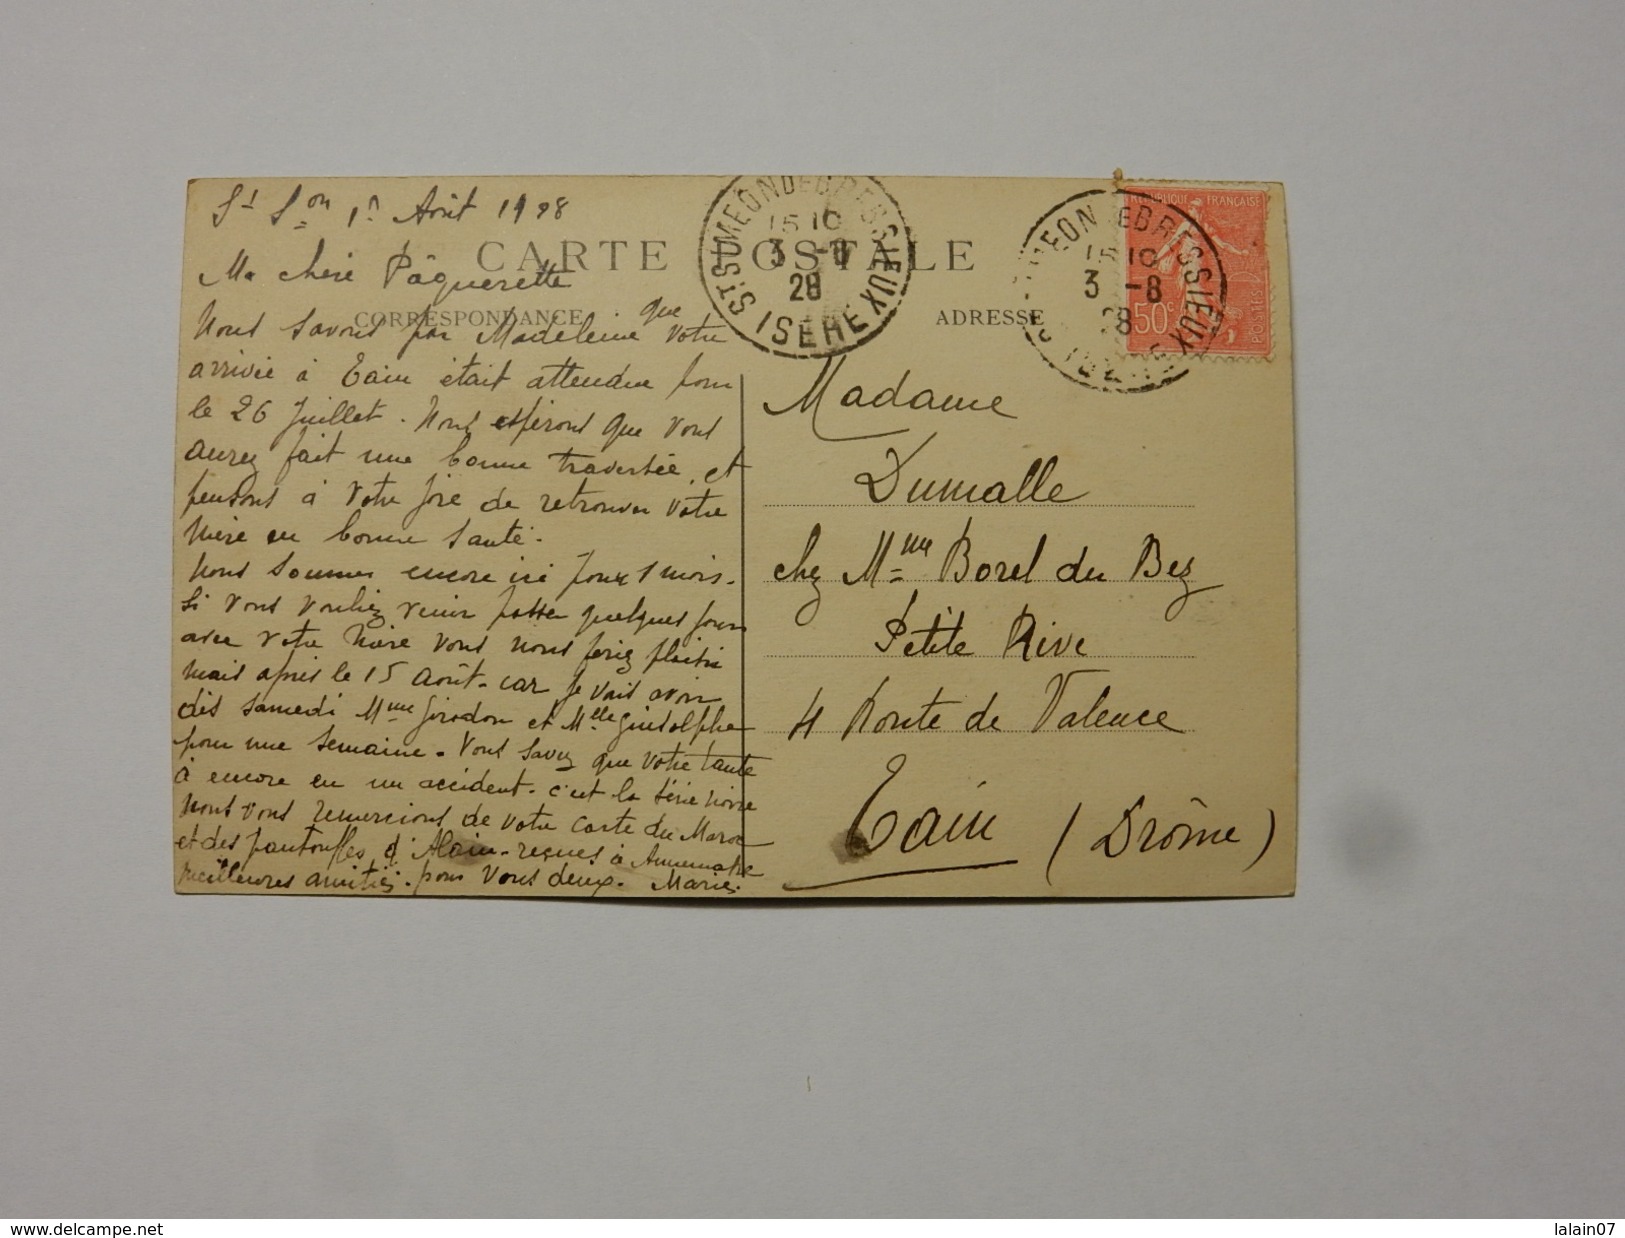 St Son 1er Août 1928
CARTE POSTALE
Ma chère Pâquerette
CORRESPONDANCE
Nous savons par Madeleine que votre
arrivée à Tain était attendue pour
le 26 Juillet. Nous espérons que vous
aurez fait une bonne traversée, et
pensons à votre joie de retrouver votre
mère en bonne santé.
Nous sommes encore ici pour 1 mois.
Si vous vouliez venir passer quelques jours
avec votre mère vous nous feriez plaisir
mais après le 15 Août. car je vais avoir
dès samedi Mme Girodon et Mlle
pour une semaine. Vous savez que votre tante
à encore eu un accident. c'est la série noire
nous vous remercions de votre carte du Maroc
et des pantoufles d'Alain. reçues à
meilleures amitiés. pour vous deux. Marie.
ST SIMEON DE BRESSIEUX
15 10
3 -8
28
ISERE
ADRESSE
SIMEON DE BRESSIEUX
15 10
3 -8
28
REPUBLIQUE FRANÇAISE
50c
POSTES
Madame
Dumalle
chez Mme Borel du Bez
Petite Rive
4 Route de Valence
Tain (Drôme)
www.delcampe.net
lalain07